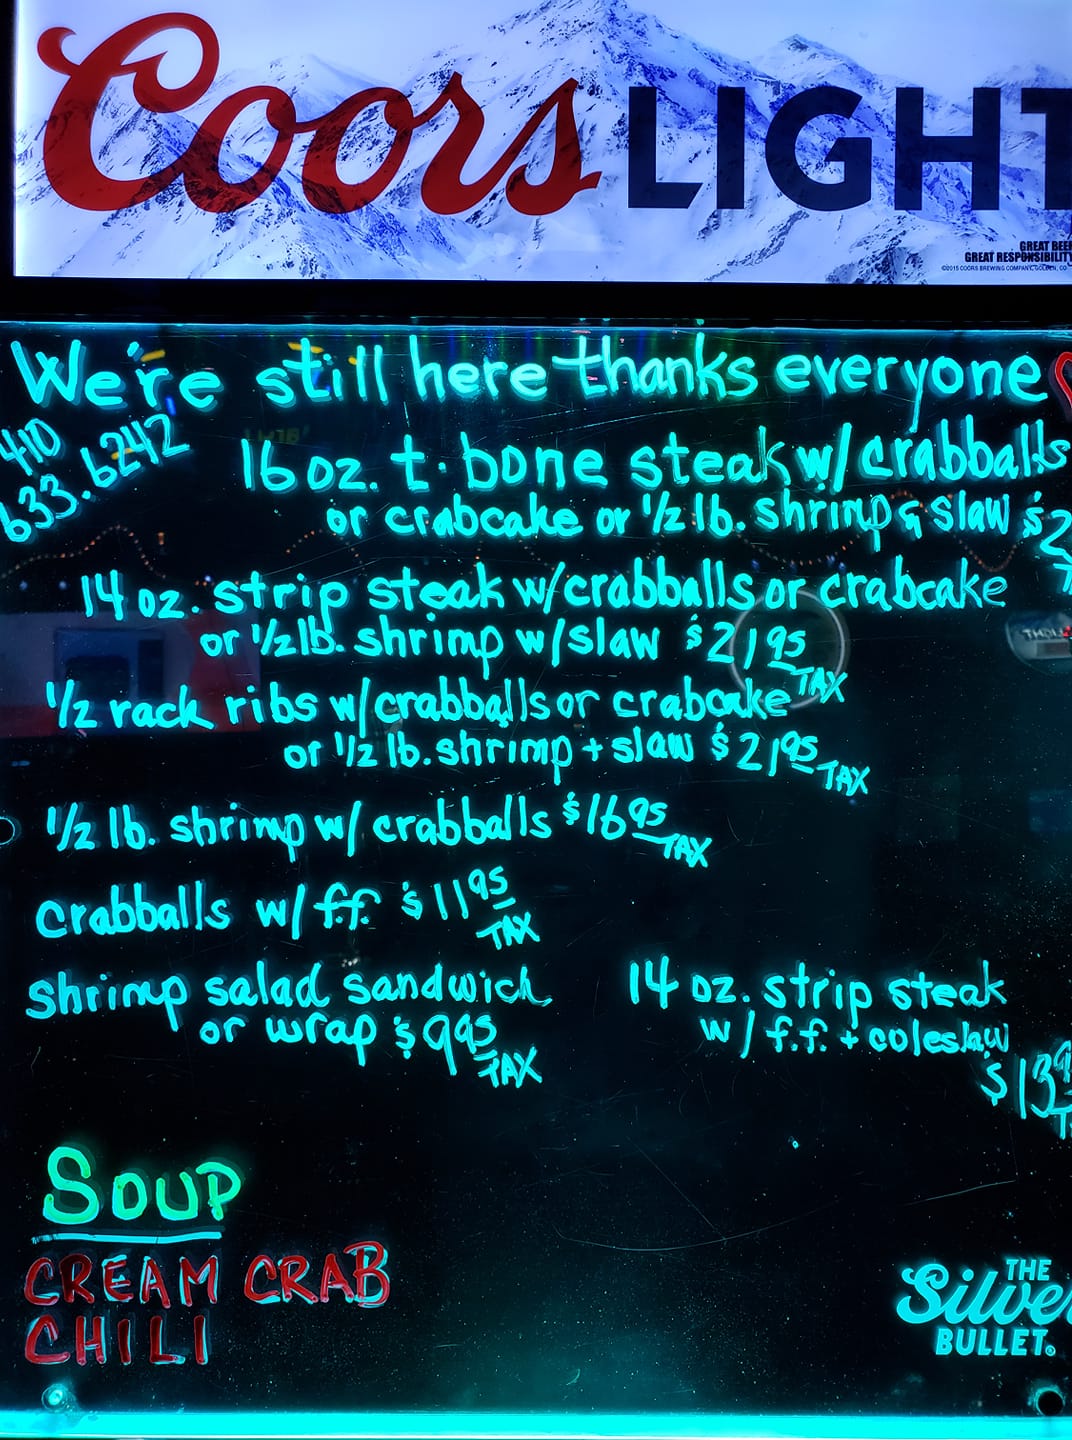 Coors LIGHT
GREAT BEER
GREAT RESPONSIBILITY
©2015 COORS BREWING COMPANY, GOLDEN, CO
We're still here thanks everyone
410
633.6242
16 oz. t-bone steak w/ crabballs
or crabcake or 1/2 lb. shrimp & slaw $2
14 oz. strip steak w/crabballs or crabcake
or 1/2 lb. shrimp w/slaw $21.95
TAX
1/2 rack ribs w/crabballs or crabcake
or 1/2 lb. shrimp + slaw $21.95
TAX
1/2 lb. shrimp w/ crabballs $16.95
TAX
crabballs w/ f.f. $11.95
TAX
shrimp salad sandwich
or wrap $9.95
TAX
14 oz. strip steak
w/ f.f. + coleslaw
$13
SOUP
CREAM CRAB
CHILI
THE
Silver
BULLET.